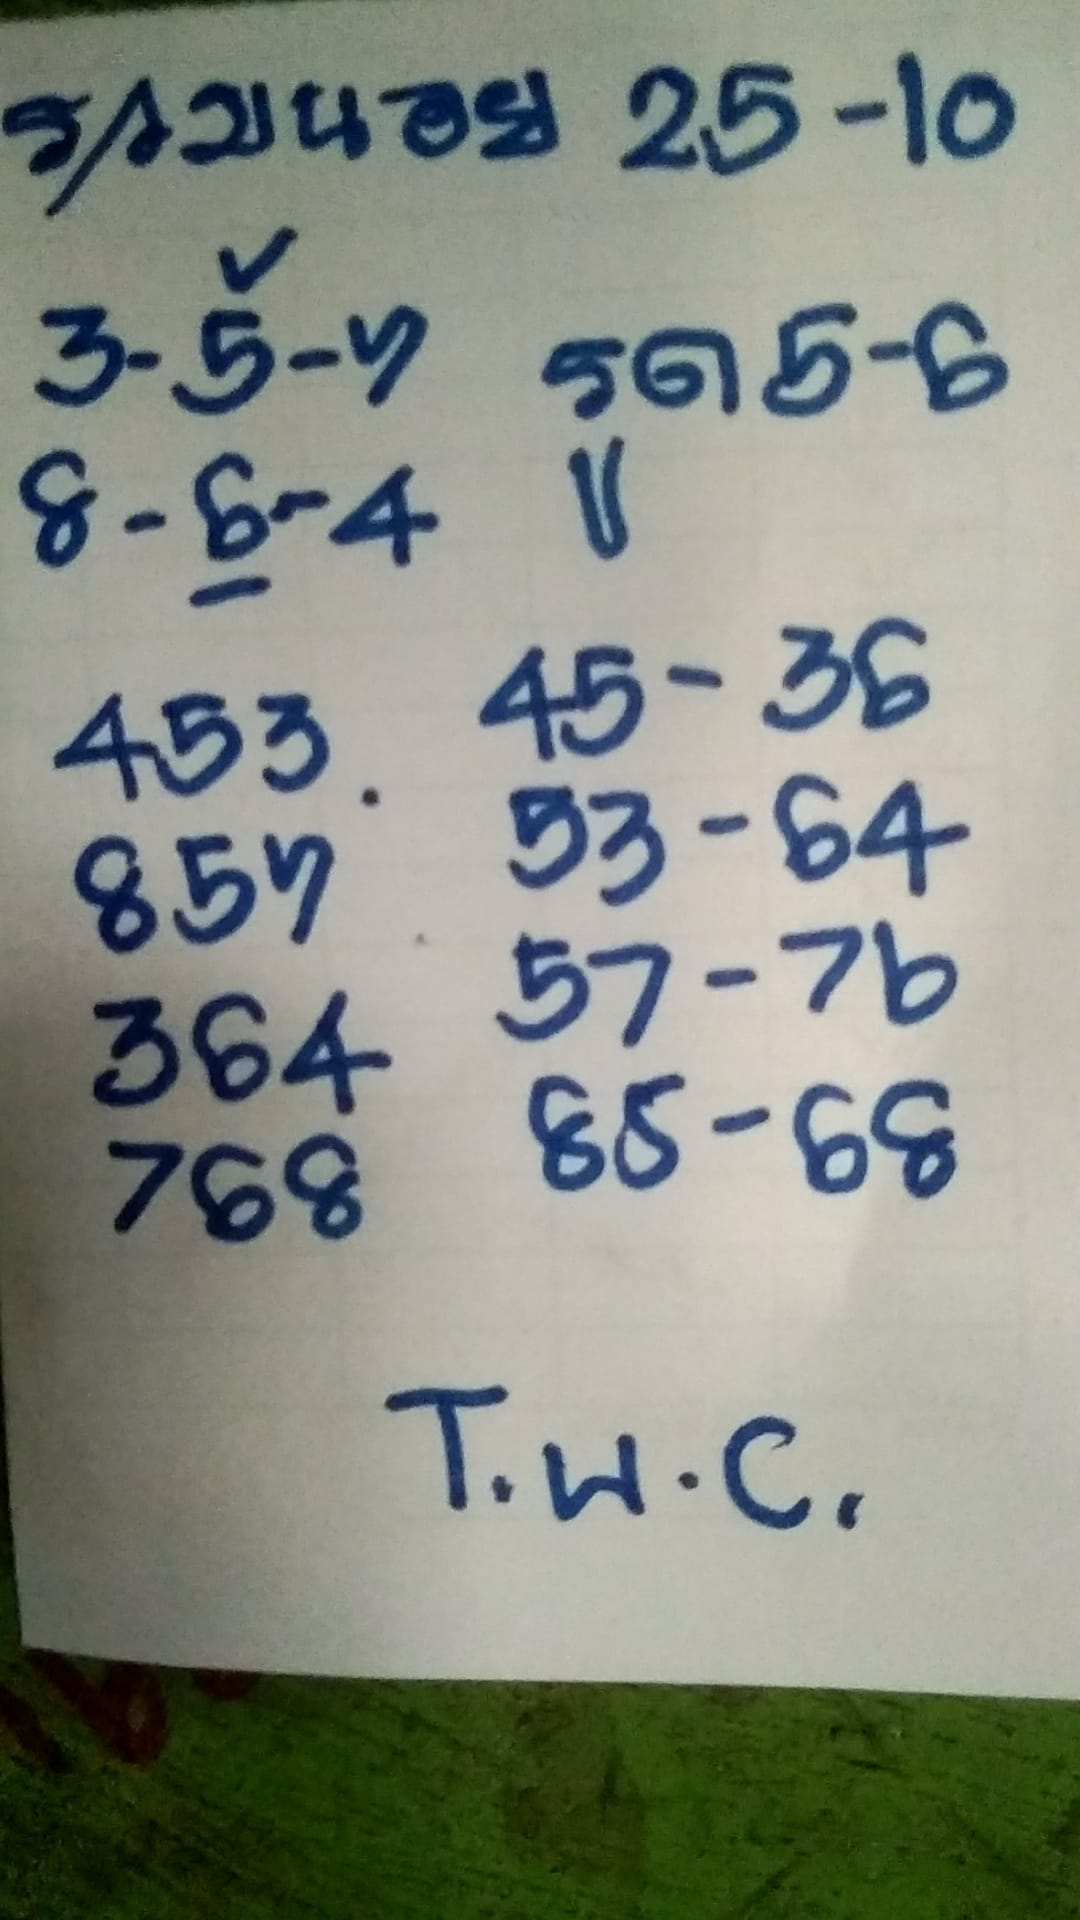 ฮานอย 25-10
3-5-7 รูด 5-6
8-6-4
453 45-36
857 53-64
364 57-76
768 85-68
T.พ.C.